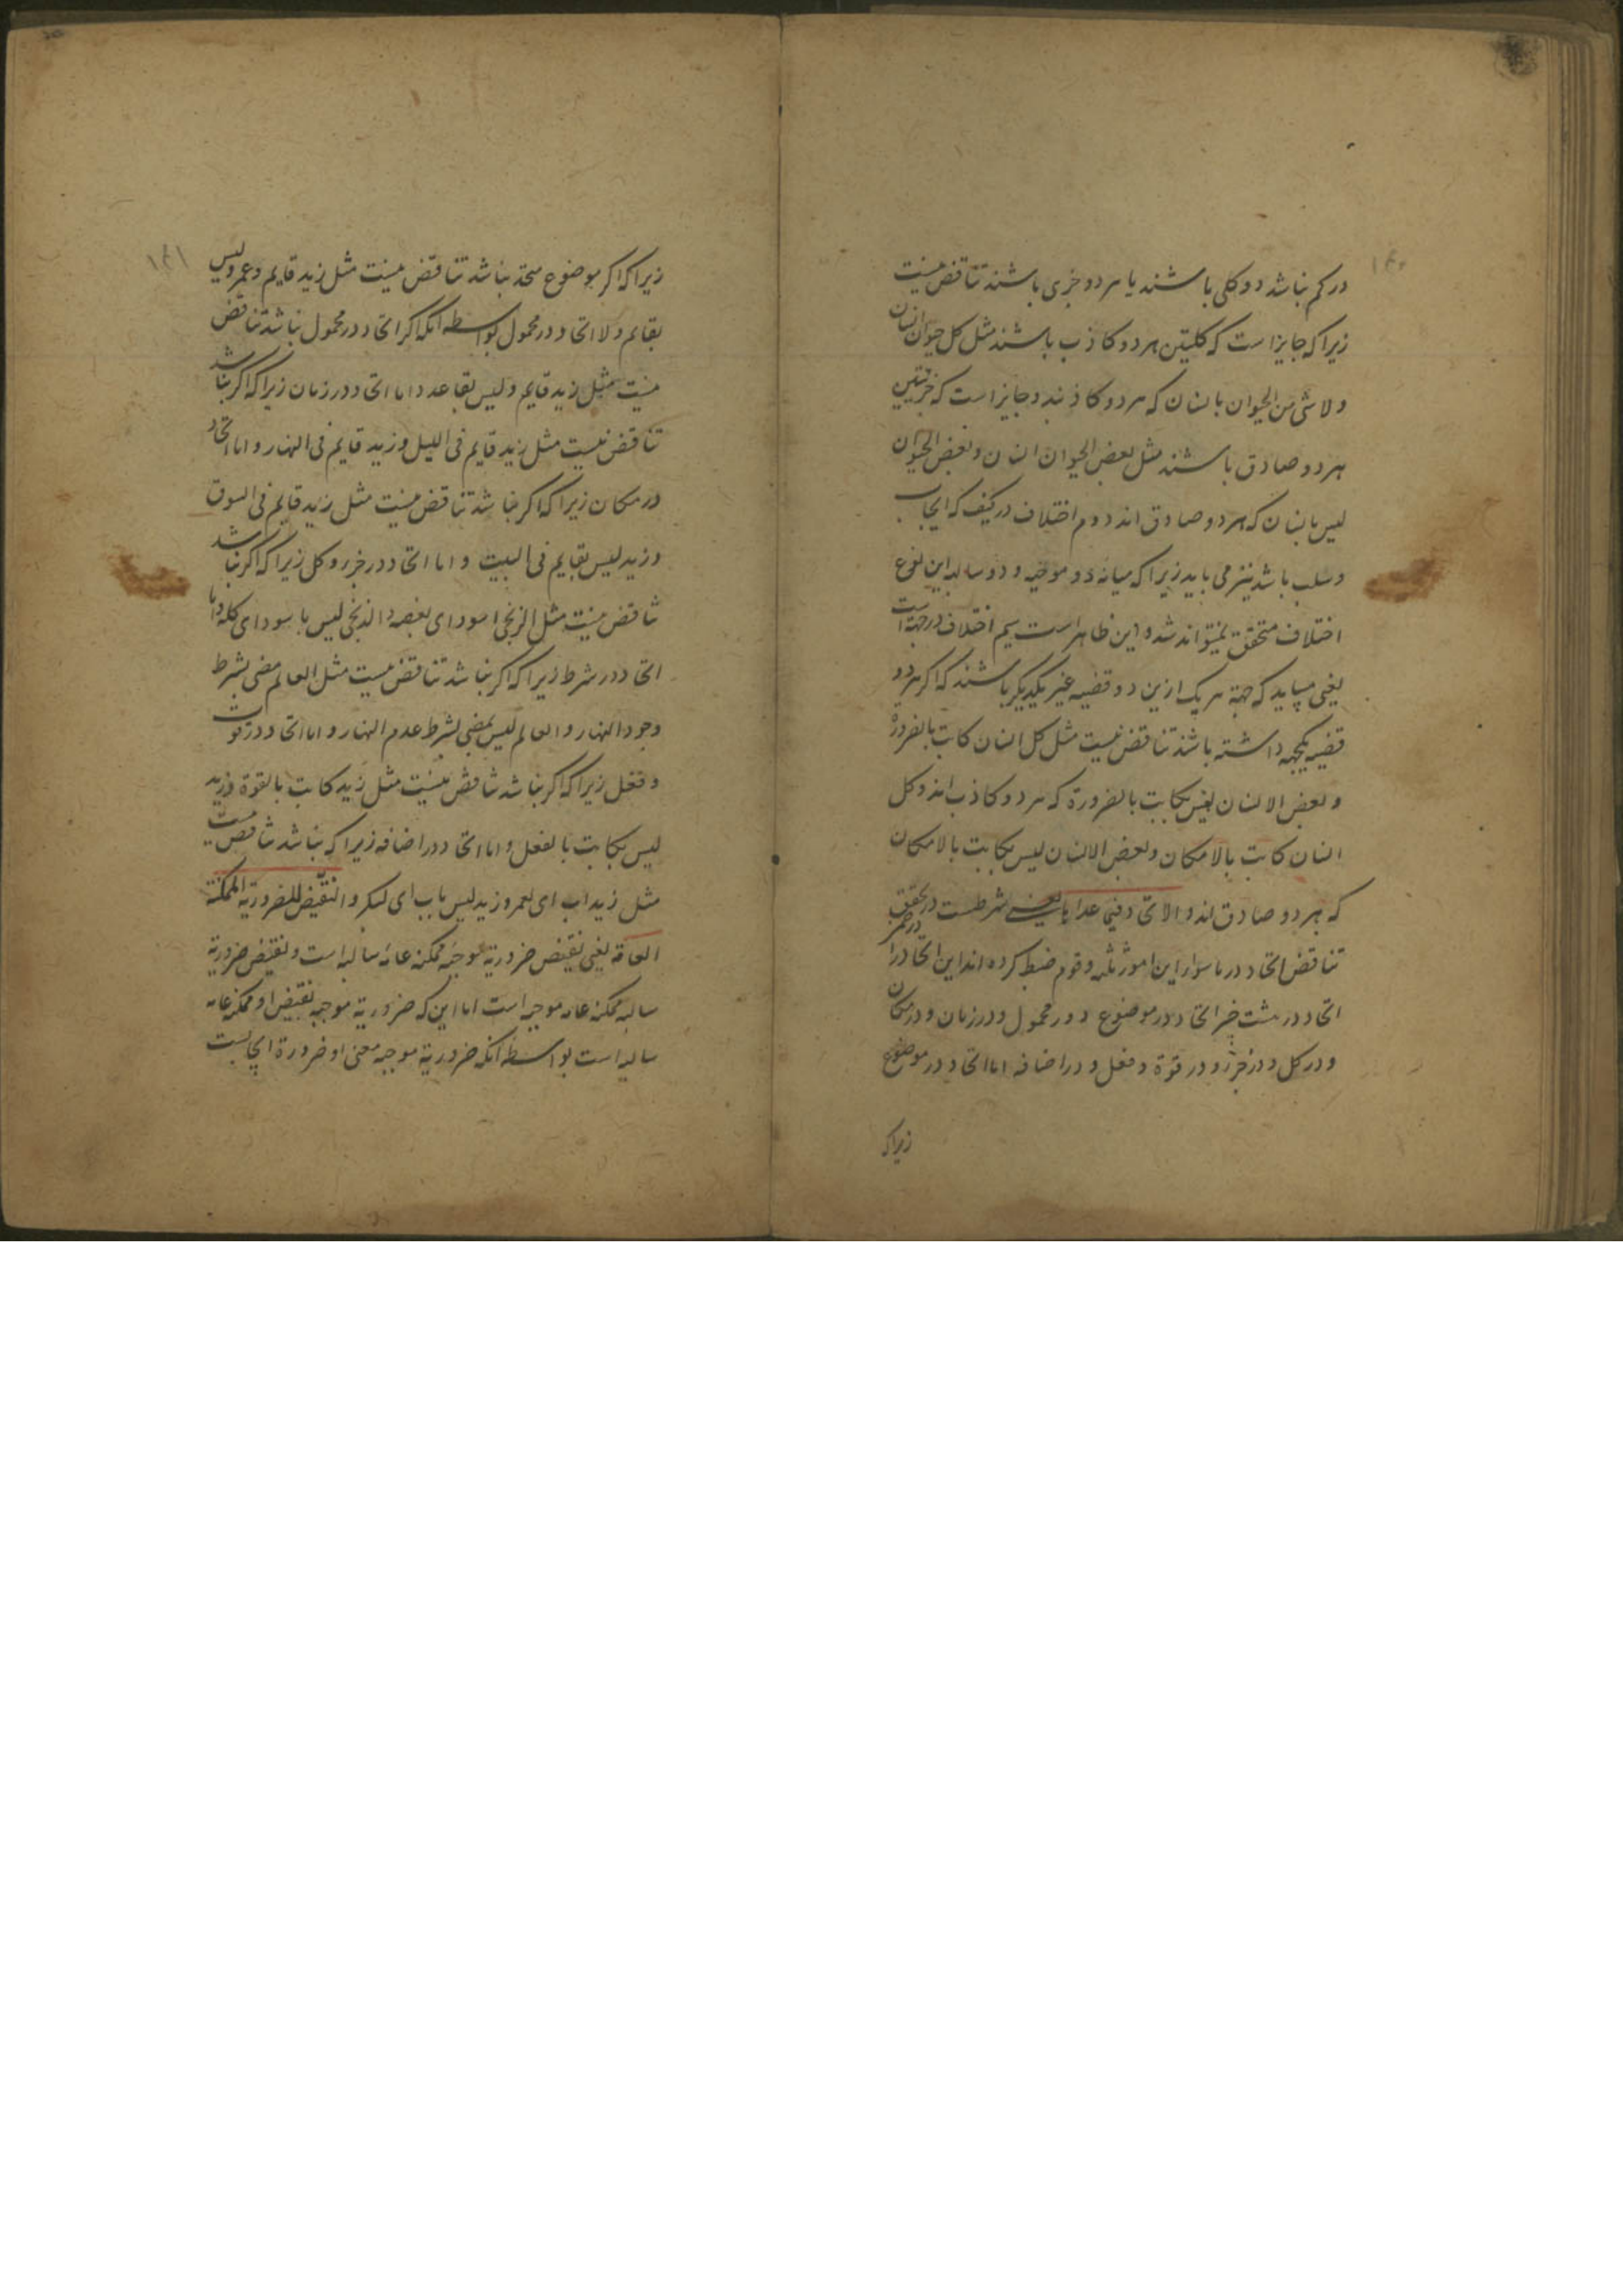 ۱۴۰
در کم نباشد دو کلی باشند یا هر دو جزی باشند تناقض نیست
زیرا که جایز است که کلیتین هر دو کاذب باشند مثل کل حیوان انسان
و لا شی من الحیوان بانسان که هر دو کاذبند و جایز است که جزئیتین
هر دو صادق باشند مثل بعض الحیوان انسان و بعض الحیوان
لیس بانسان که هر دو صادق اند دوم اختلاف در کیف که ایجاب
و سلب باشد نیز می باید زیرا که میانه دو موجبه و دو سالبه این نوع
اختلاف متحقق نمیتواند شد و این ظاهر است سیم اختلاف در جهة است
یعنی میباید که جهة هر یک ازین دو قضیه غیر یکدیگر باشند که اگر هر دو
قضیه یکجهه داشته باشند تناقض نیست مثل کل انسان کاتب بالضرورة
و بعض الانسان لیس بکاتب بالضرورة که هر دو کاذب اند و کل
انسان کاتب بالامکان و بعض الانسان لیس بکاتب بالامکان
که هر دو صادق اند و الاتحاد فیما عداها یعنی شرطست در تحقق
تناقض اتحاد در ما سوای این امور ثلثه و قوم ضبط کرده اند این اتحاد را
اتحاد در هشت چیز اتحاد در موضوع و در محمول و در زمان و در مکان
و در کل و در جزو و در قوة و فعل و در اضافه اما اتحاد در موضوع
زیرا که
۱۴۱
زیرا که اگر موضوع متحد نباشد تناقض نیست مثل زید قایم و عمرو لیس
بقایم و لا اتحاد در محمول بواسطه آنکه اگر اتحاد در محمول نباشد تناقض
نیست مثل زید قایم و لیس بقاعد و اما اتحاد در زمان زیرا که اگر نباشد
تناقض نیست مثل زید قایم فی اللیل و زید قایم فی النهار و اما اتحاد
در مکان زیرا که اگر نباشد تناقض نیست مثل زید قایم فی السوق
و زید لیس بقایم فی البیت و اما اتحاد در جزو و کل زیرا که اگر نباشد
تناقض نیست مثل الزنجی اسود ای بعضه و الزنجی لیس باسود ای کله و اما
اتحاد در شرط زیرا که اگر نباشد تناقض نیست مثل العالم مضی بشرط
وجود النهار و العالم لیس بمضی بشرط عدم النهار و اما اتحاد در قوت
و فعل زیرا که اگر نباشد تناقض نیست مثل زید کاتب بالقوة و زید
لیس بکاتب بالفعل و اما اتحاد در اضافه زیرا که نباشد تناقض نیست
مثل زید اب ای لعمرو زید لیس باب ای لبکر و النقیض للضروریة الممکنة
العامة یعنی نقیض ضروریة موجبه ممکنه عامه سالبه است و نقیض ضروریة
سالبه ممکنه عامه موجبه است اما این که ضروریة موجبه نقیض او ممکنه عامه
سالبه است بواسطه آنکه ضروریة موجبه معنی او ضرورة ایجابست